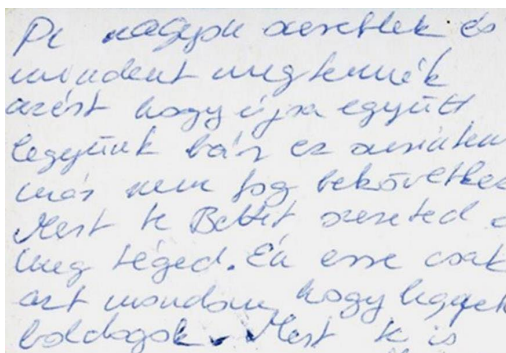 De nagyon szeretlek és
mindent megtennék
azért hogy újra együtt
legyünk bár ez szerintem
már nem fog bekövetkez
Mert te Bettit szereted ő
meg téged. Én erre csak
azt mondom, hogy legyetek
boldogok. Mert te is